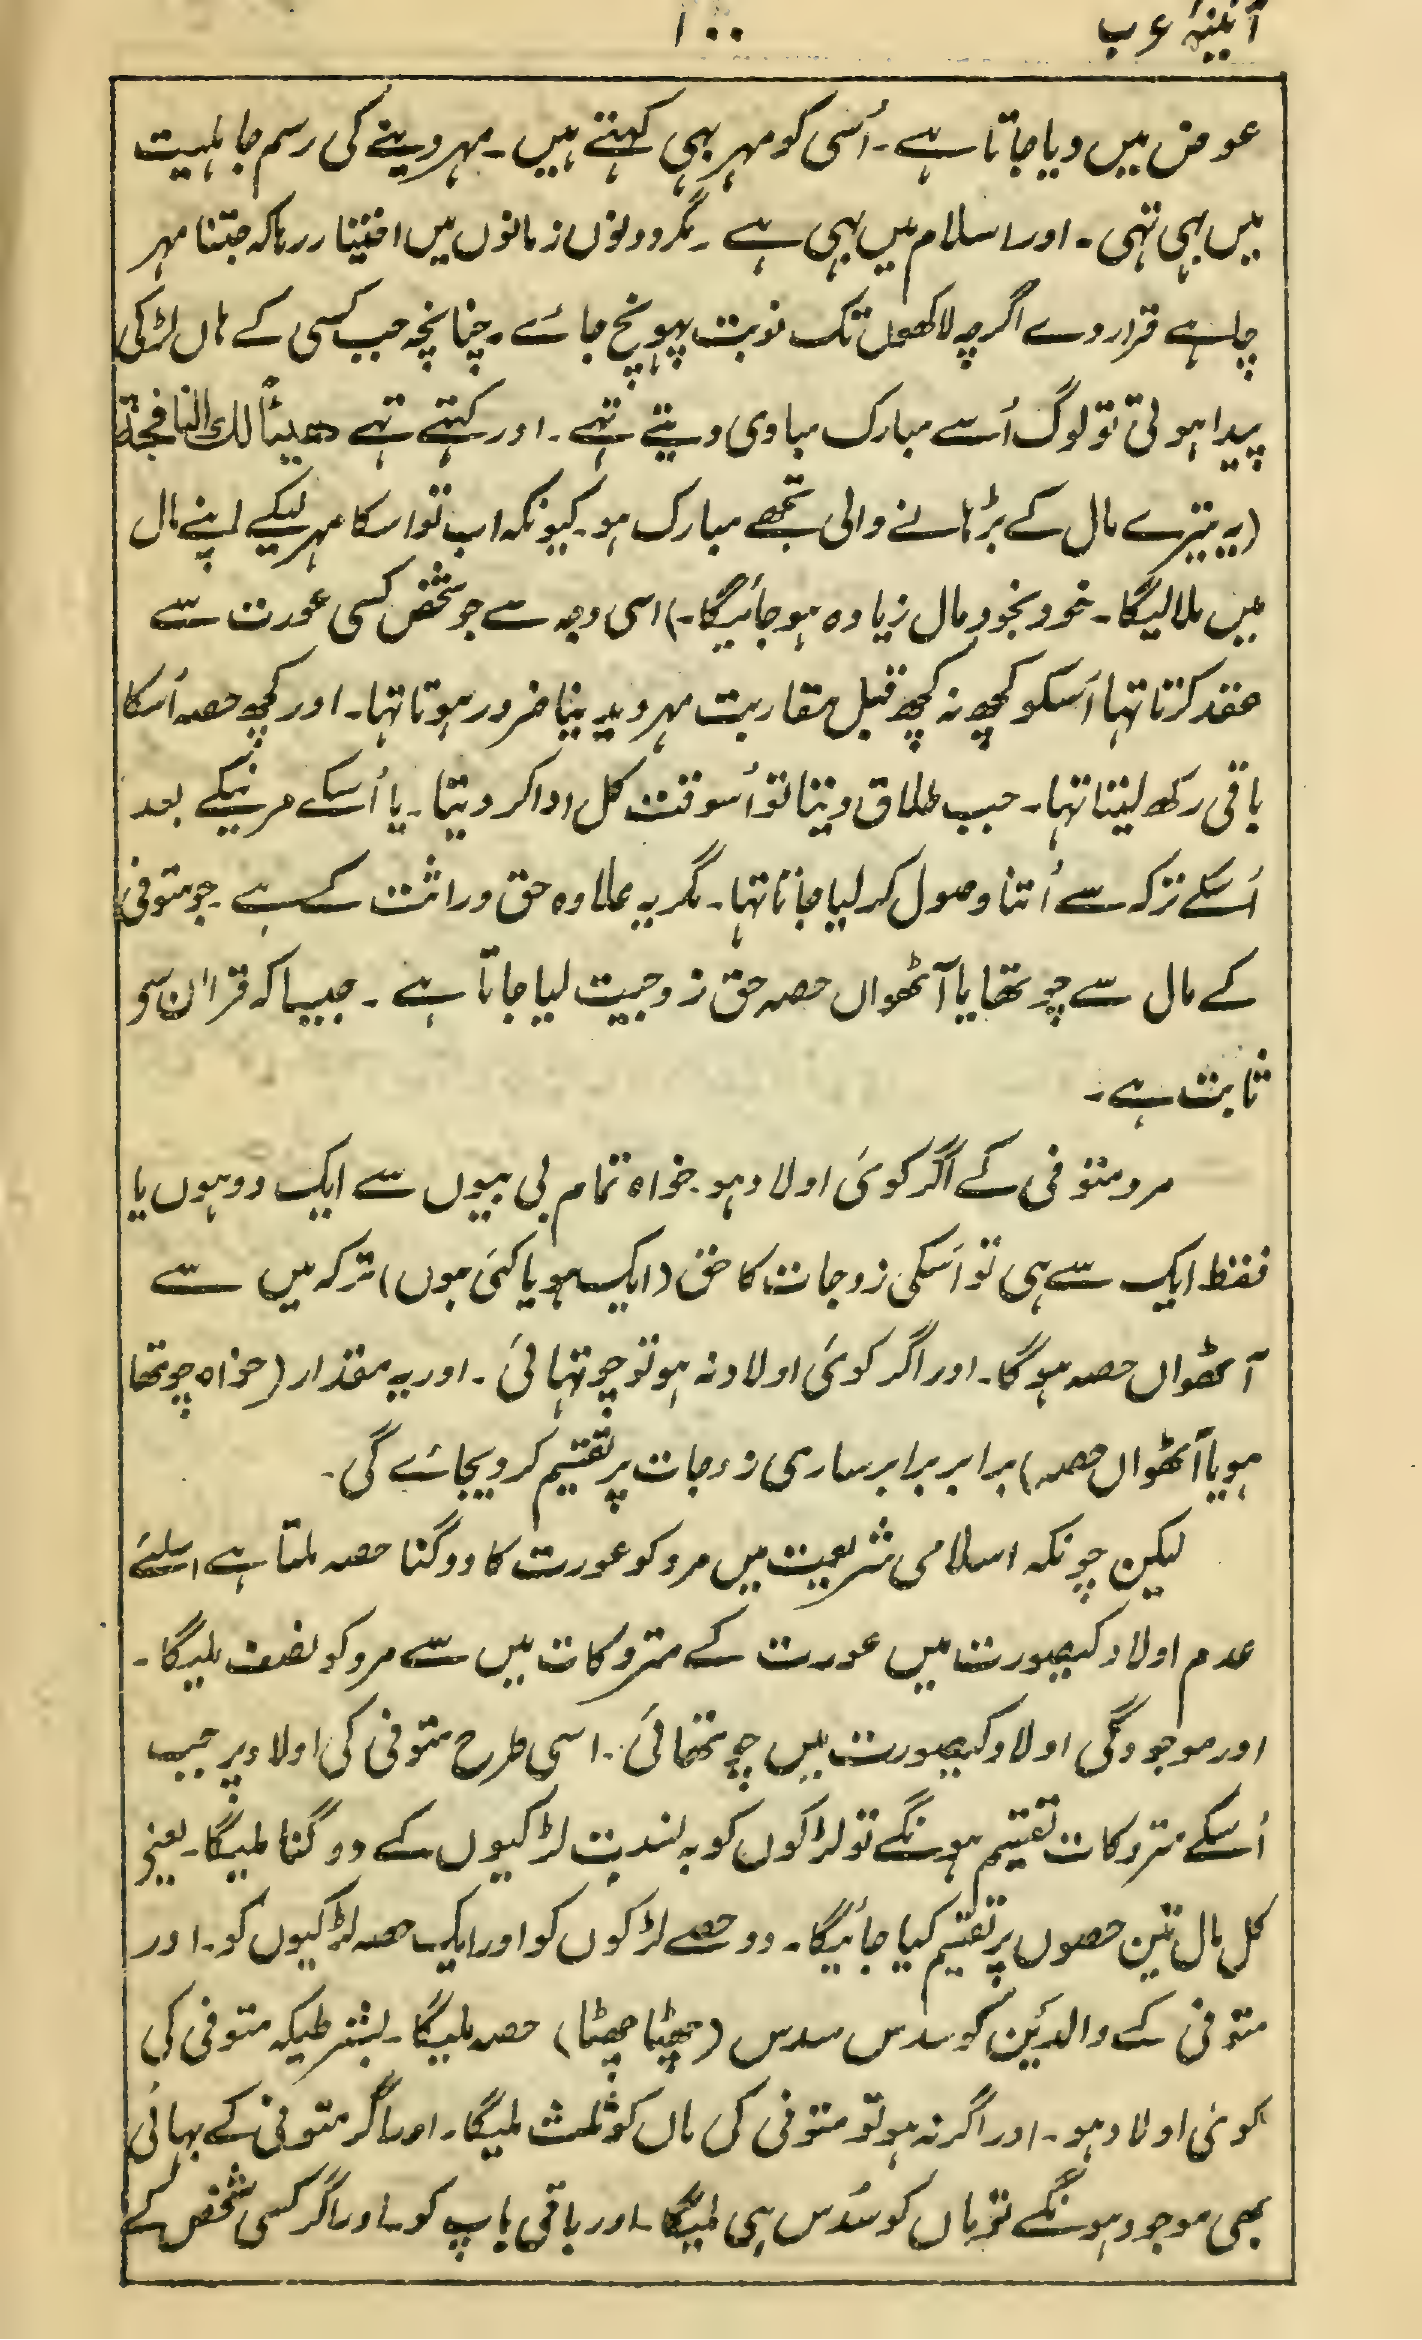 آئینۂ عرب
۱۰۰
عوض میں دیا جاتا ہے۔ اُسی کو مہر بہی کہتے ہیں۔ مہر دینے کی رسم جاہلیت
میں بہی تہی۔ اور اسلام میں بہی ہے۔ مگر دونوں زمانوں میں اختیار رہا کہ جتنا مہر
چاہے قرار دے اگرچہ لاکھوں تک نوبت پہونچ جائے۔ چنانچہ جب کسی کے ہاں لڑکی
پیدا ہوتی تو لوگ اُسے مبارک مبادی دیتے تہے۔ اور کہتے تہے ھنیئاً لك النافجۃ
(یہ تیرے مال کے بڑہانے والی تجھے مبارک ہو۔ کیونکہ اب تو اسکا مہر لیکے اپنے مال
میں ملا لیگا۔ خود بخود مال زیادہ ہو جائیگا۔) اسی وجہ سے جو شخص کسی عورت سے
عقد کرتا تہا اُسکو کچھ نہ کچھ قبل مقاربت مہر دیدینا ضرور ہوتا تہا۔ اور کچھ حصہ اُسکا
باقی رکھ لیتا تہا۔ جب طلاق دیتا تو اُسوقت کل ادا کر دیتا۔ یا اُسکے مرنیکے بعد
اُسکے ترکہ سے اُتنا وصول کر لیا جاتا تہا۔ مگر یہ علاوہ حق وراثت کے ہے۔ جو متوفی
کے مال سے چوتھا یا آٹھواں حصہ حق زوجیت لیا جاتا ہے۔ جیسا کہ قرآن سے
ثابت ہے۔
مرد متوفی کے اگر کوئی اولاد ہو۔ خواہ تمام بی بیوں سے ایک دو ہوں یا
فقط ایک سے ہی تو اُسکی زوجات کا حق (ایک ہو یا کئی ہوں) ترکہ میں سے
آٹھواں حصہ ہو گا۔ اور اگر کوئی اولاد نہ ہو تو چوتہائی۔ اور یہ مقدار (خواہ چوتھا
ہو یا آٹھواں حصہ) برابر برابر ساری زوجات پر تقسیم کر دیجائے گی۔
لیکن چونکہ اسلامی شریعت میں مرد کو عورت کا دوگنا حصہ ملتا ہے اسلئے
عدم اولاد کیصورت میں عورت کے متروکات میں سے مرد کو نصف ملیگا۔
اور موجودگی اولاد کیصورت میں چوتھائی۔ اسی طرح متوفی کی اولاد پر جب
اُسکے متروکات تقسیم ہونگے تو لڑکوں کو بہ نسبت لڑکیوں کے دوگنا ملیگا۔ یعنی
کل مال تین حصوں پر تقسیم کیا جائیگا۔ دو حصے لڑکوں کو اور ایک حصہ لڑکیوں کو۔ اور
متوفی کے والدین کو سدس سدس (چھٹا چھٹا) حصہ ملیگا۔ بشرطیکہ متوفی کی
کوئی اولاد ہو۔ اور اگر نہ ہو تو متوفی کی ماں کو ثلث ملیگا۔ اور اگر متوفی کے بہائی
بھی موجود ہونگے تو ماں کو سُدس ہی ملیگا۔ اور باقی باپ کو۔ اور اگر کسی شخص کے